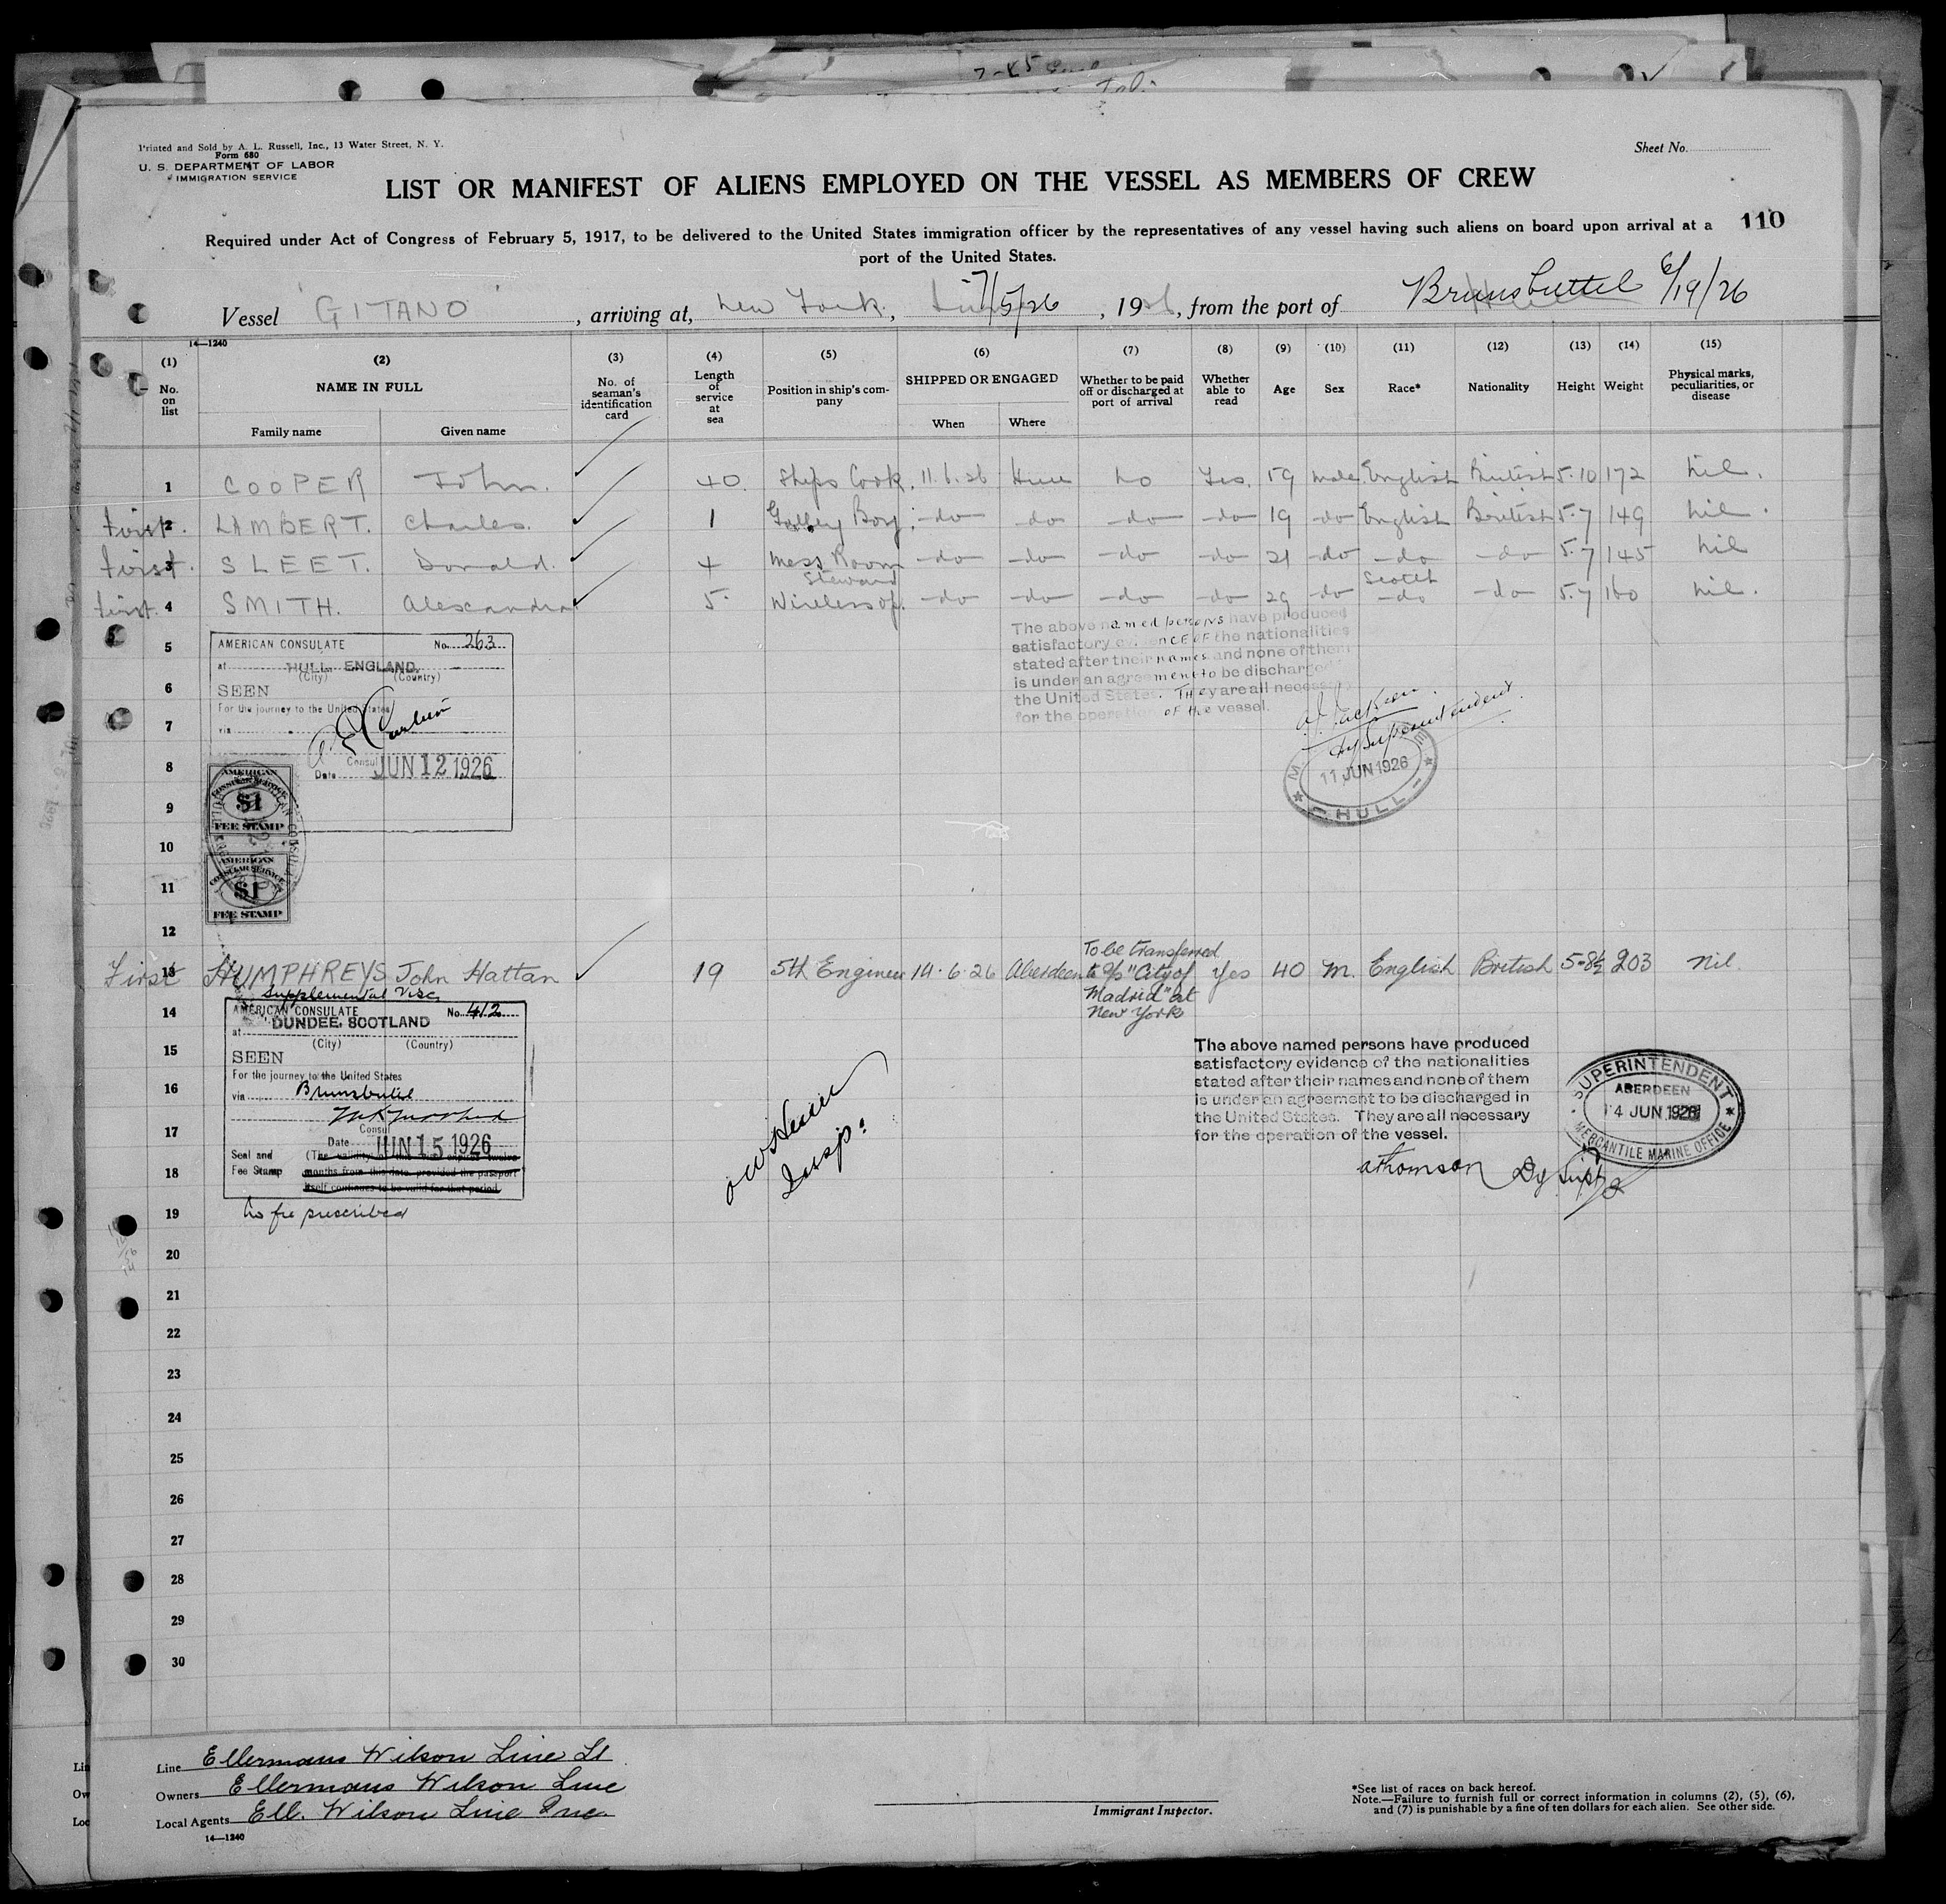 Printed and Sold by A. L. Russell, Inc., 13 Water Street, N. Y.
Form 680
U. S. DEPARTMENT OF LABOR
IMMIGRATION SERVICE
Sheet No.
LIST OR MANIFEST OF ALIENS EMPLOYED ON THE VESSEL AS MEMBERS OF CREW
110
Required under Act of Congress of February 5, 1917, to be delivered to the United States immigration officer by the representatives of any vessel having such aliens on board upon arrival at a
port of the United States.
Vessel GITANO, arriving at, New York, 7/5/26, 1926, from the port of Brunsbuttel 6/19/26
14—1240
(1) No. on list
(2) NAME IN FULL
Family name Given name
(3) No. of seaman's identification card
(4) Length of service at sea
(5) Position in ship's company
(6) SHIPPED OR ENGAGED
When Where
(7) Whether to be paid off or discharged at port of arrival
(8) Whether able to read
(9) Age
(10) Sex
(11) Race*
(12) Nationality
(13) Height
(14) Weight
(15) Physical marks, peculiarities, or disease
1 COOPER John. 40 Ships Cook. 11.6.26 Hull no Yes 59 male English British 5.10 172 nil.
first 2 LAMBERT. Charles. 1 Galley Boy. -do- -do- -do- -do- 19 -do- English British 5.7 149 nil.
first 3 SLEET. Donald. 4 Mess Room Steward -do- -do- -do- -do- 21 -do- -do- -do- 5.7 145 nil
first 4 SMITH. Alexandra 5 Wireless op. -do- -do- -do- -do- 29 -do- Scotch -do- -do- 5.7 160 nil.
5
6
7
8
9
10
11
12
AMERICAN CONSULATE No. 263
at HULL ENGLAND.
(City) (Country)
SEEN
For the journey to the United States
via
Consul
Date JUN 12 1926
AMERICAN CONSULAR SERVICE
$1
FEE STAMP
AMERICAN CONSULAR SERVICE
$1
FEE STAMP
The above named persons have produced
satisfactory evidence of the nationalities
stated after their names and none of them
is under an agreement to be discharged
the United States. They are all necessary
for the operation of the vessel.
Dy Superintendent.
11 JUN 1926
HULL
First 13 HUMPHREYS John Hattan 19 5th Engineer 14.6.26 Aberdeen To be transferred to S/S "City of Madrid" at New York Yes 40 M. English British 5-8½ 203 Nil
14
15
16
17
18
19
Supplemental Visa
AMERICAN CONSULATE No. 412
at DUNDEE, SCOTLAND
(City) (Country)
SEEN
For the journey to the United States
via Brunsbuttel
Consul
Date JUN 15 1926
Seal and Fee Stamp
(The validity of this visa expires twelve
months from this date, provided the passport
itself continues to be valid for that period.
No fee prescribed
Insp:
The above named persons have produced
satisfactory evidence of the nationalities
stated after their names and none of them
is under an agreement to be discharged in
the United States. They are all necessary
for the operation of the vessel.
AThomson Dy Supt
SUPERINTENDENT
ABERDEEN
14 JUN 1926
MERCANTILE MARINE OFFICE
20
21
22
23
24
25
26
27
28
29
30
Line Ellermans Wilson Line Lt
Owners Ellermans Wilson Line
Local Agents Ell. Wilson Line Inc.
14—1240
Immigrant Inspector.
*See list of races on back hereof.
Note.—Failure to furnish full or correct information in columns (2), (5), (6),
and (7) is punishable by a fine of ten dollars for each alien. See other side.